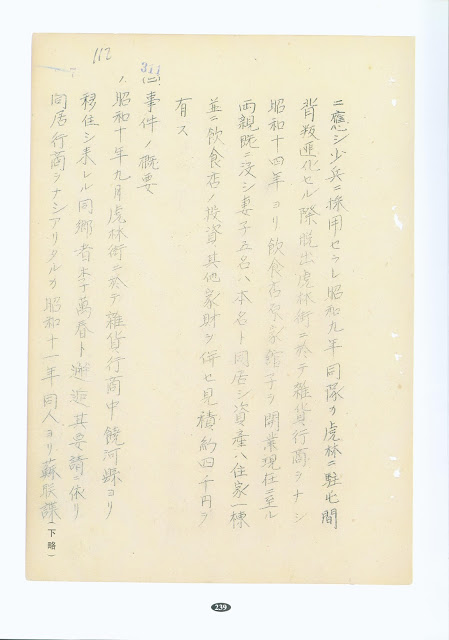 ニ應ジ少兵ニ採用セラレ昭和九年同隊ガ虎林ニ駐屯間
背叛匪化セル際脱出虎林街ニ於テ雜貨行商ヲナシ
昭和十四年ヨリ飲食店張家館子ヲ開業現在ニ至ル
両親既ニ沒シ妻子五名ハ本名ト同居シ資産ハ住家一棟
並ニ飲食店ノ投資其他家財ヲ併セ見積約四千円ヲ
有ス
(二)事件ノ概要
ノ昭和十年九月虎林街ニ於テ雜貨行商中饒河縣ヨリ
移住シ来レル同郷者李萬春ト邂逅其要請ニ依リ
同居行商ヲナシアリタルガ昭和十一年同人ヨリ蘇联諜
(下略)
112
239